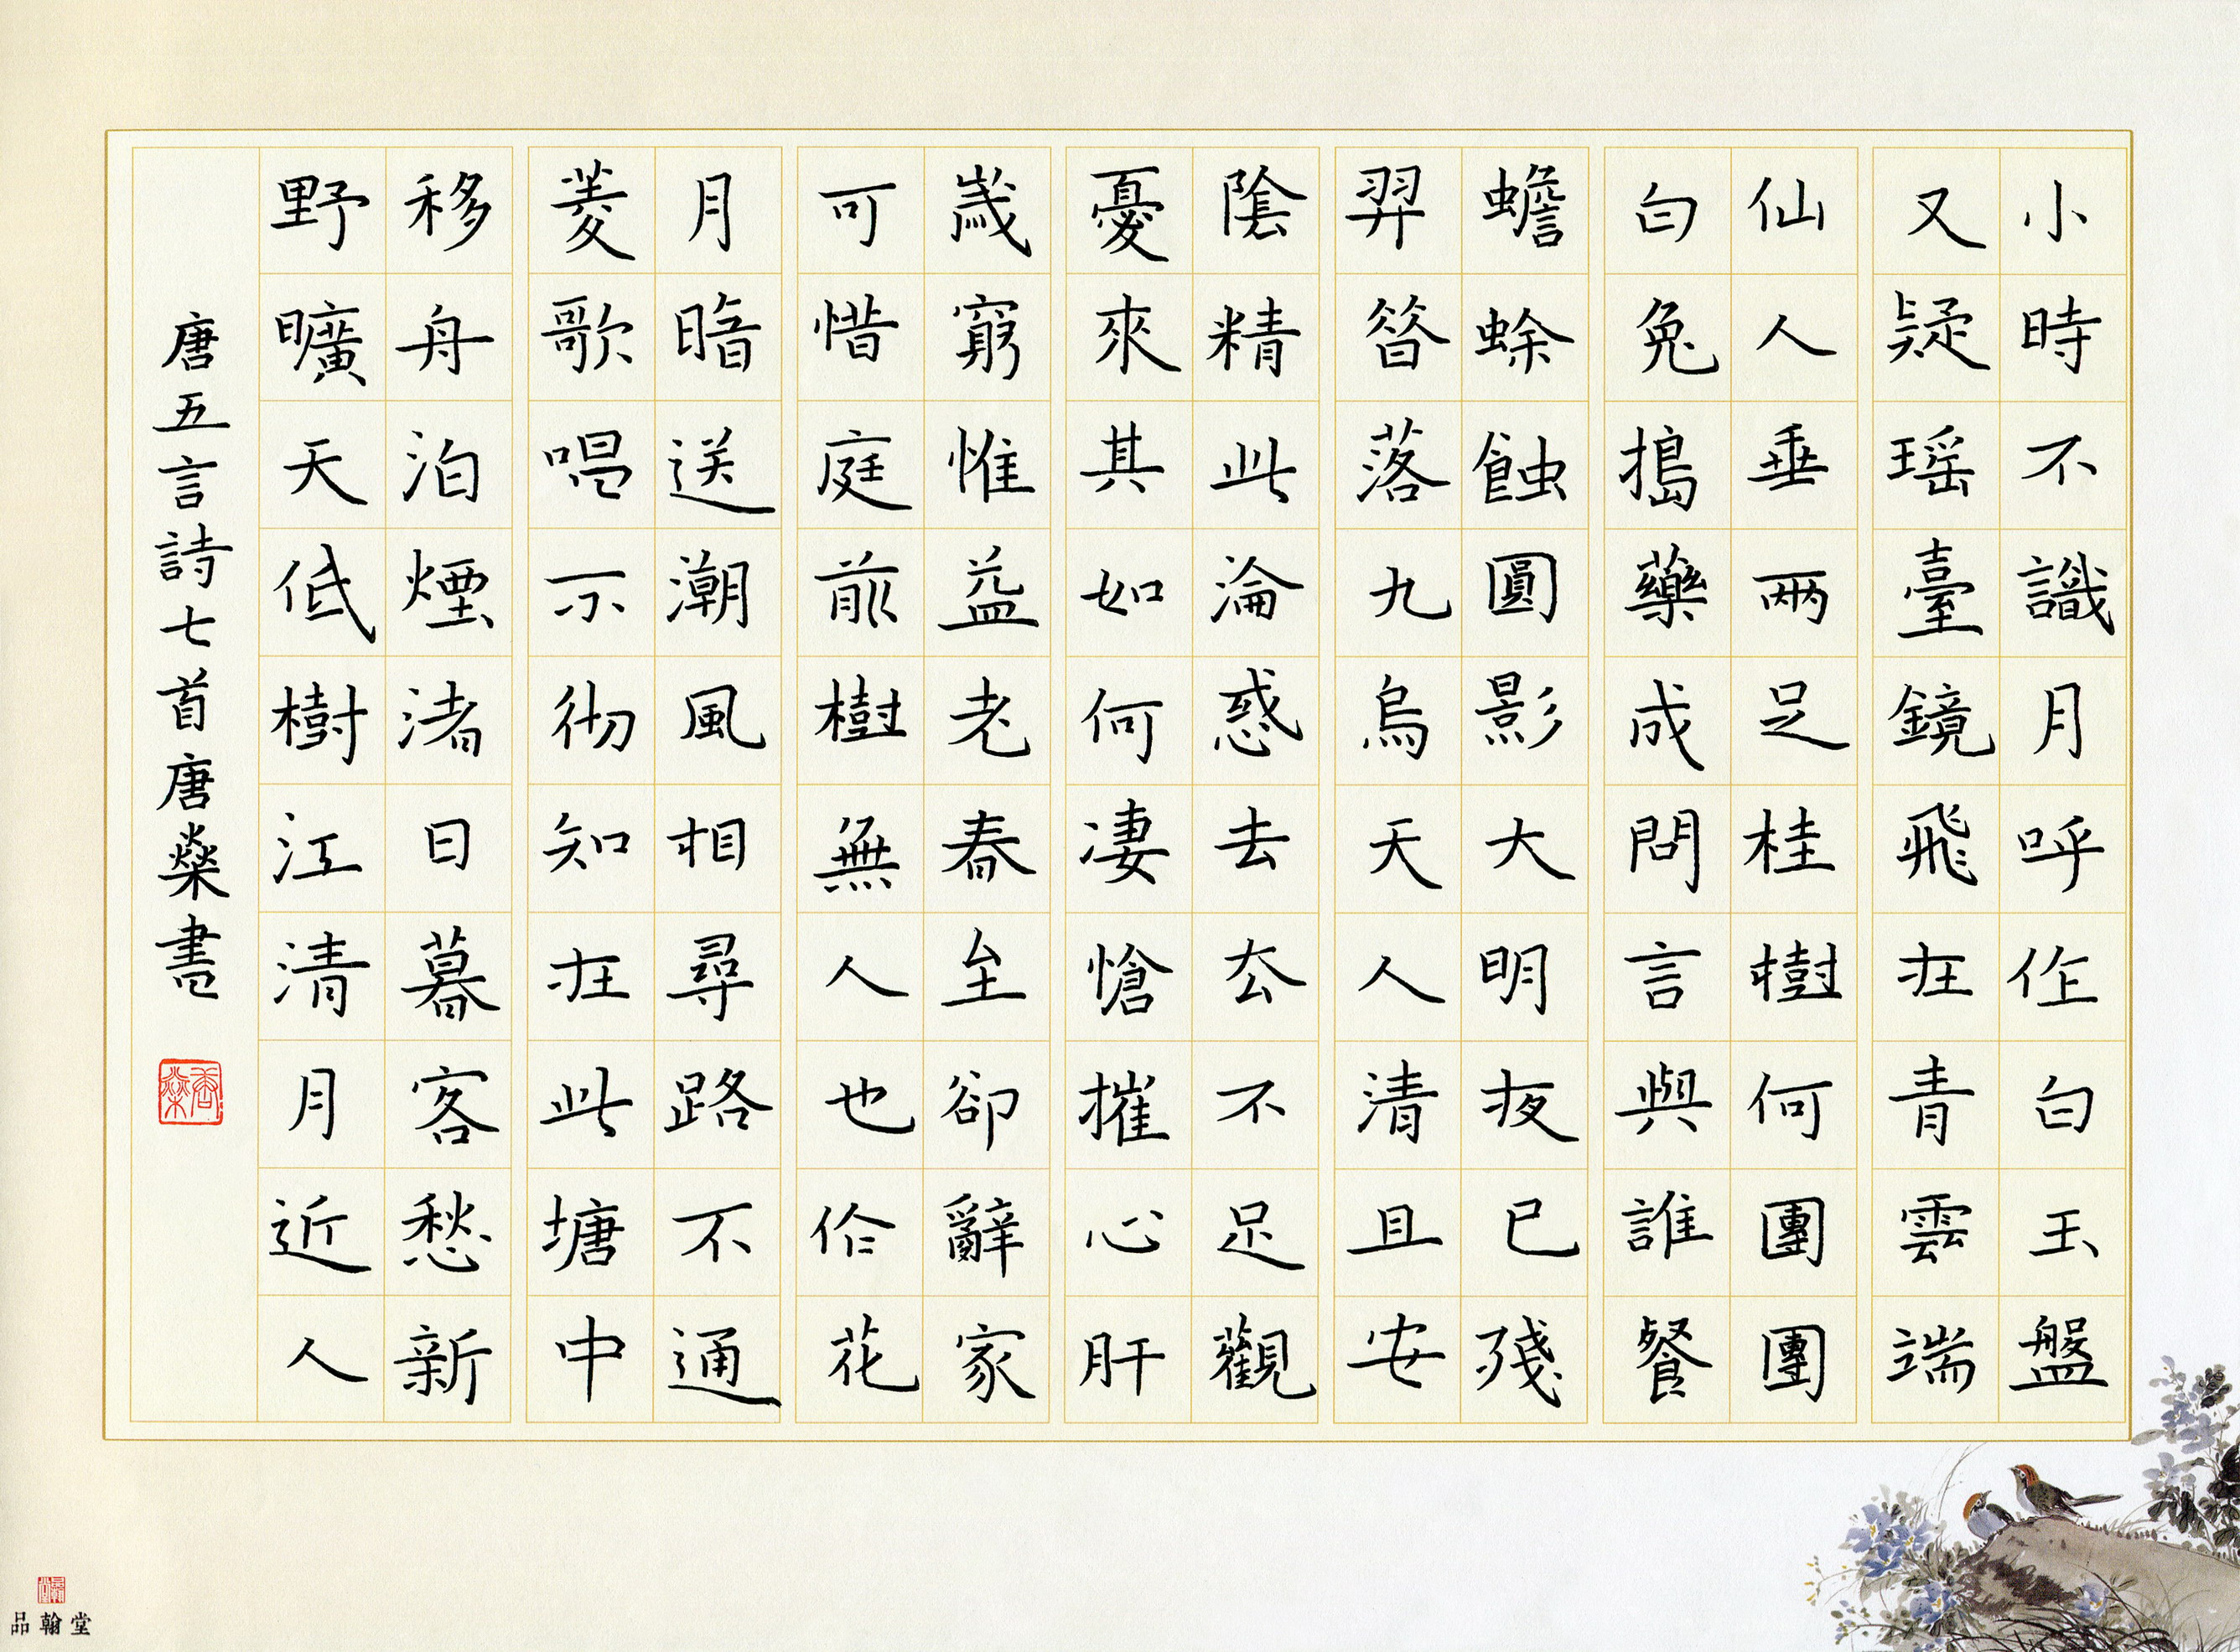 小時不識月呼作白玉盤
又疑瑶臺鏡飛在青雲端
仙人垂兩足桂樹何團團
白兔搗藥成問言與誰餐
蟾蜍蝕圓影大明夜已殘
羿昝落九烏天人清且安
陰精此淪惑去去不足觀
憂來其如何凄愴摧心肝
歲窮惟益老春至卻辭家
可惜庭前樹無人也作花
月暗送潮風相尋路不通
菱歌唱不徹知在此塘中
移舟泊煙渚日暮客愁新
野曠天低樹江清月近人
唐五言詩七首唐燊書
品翰堂